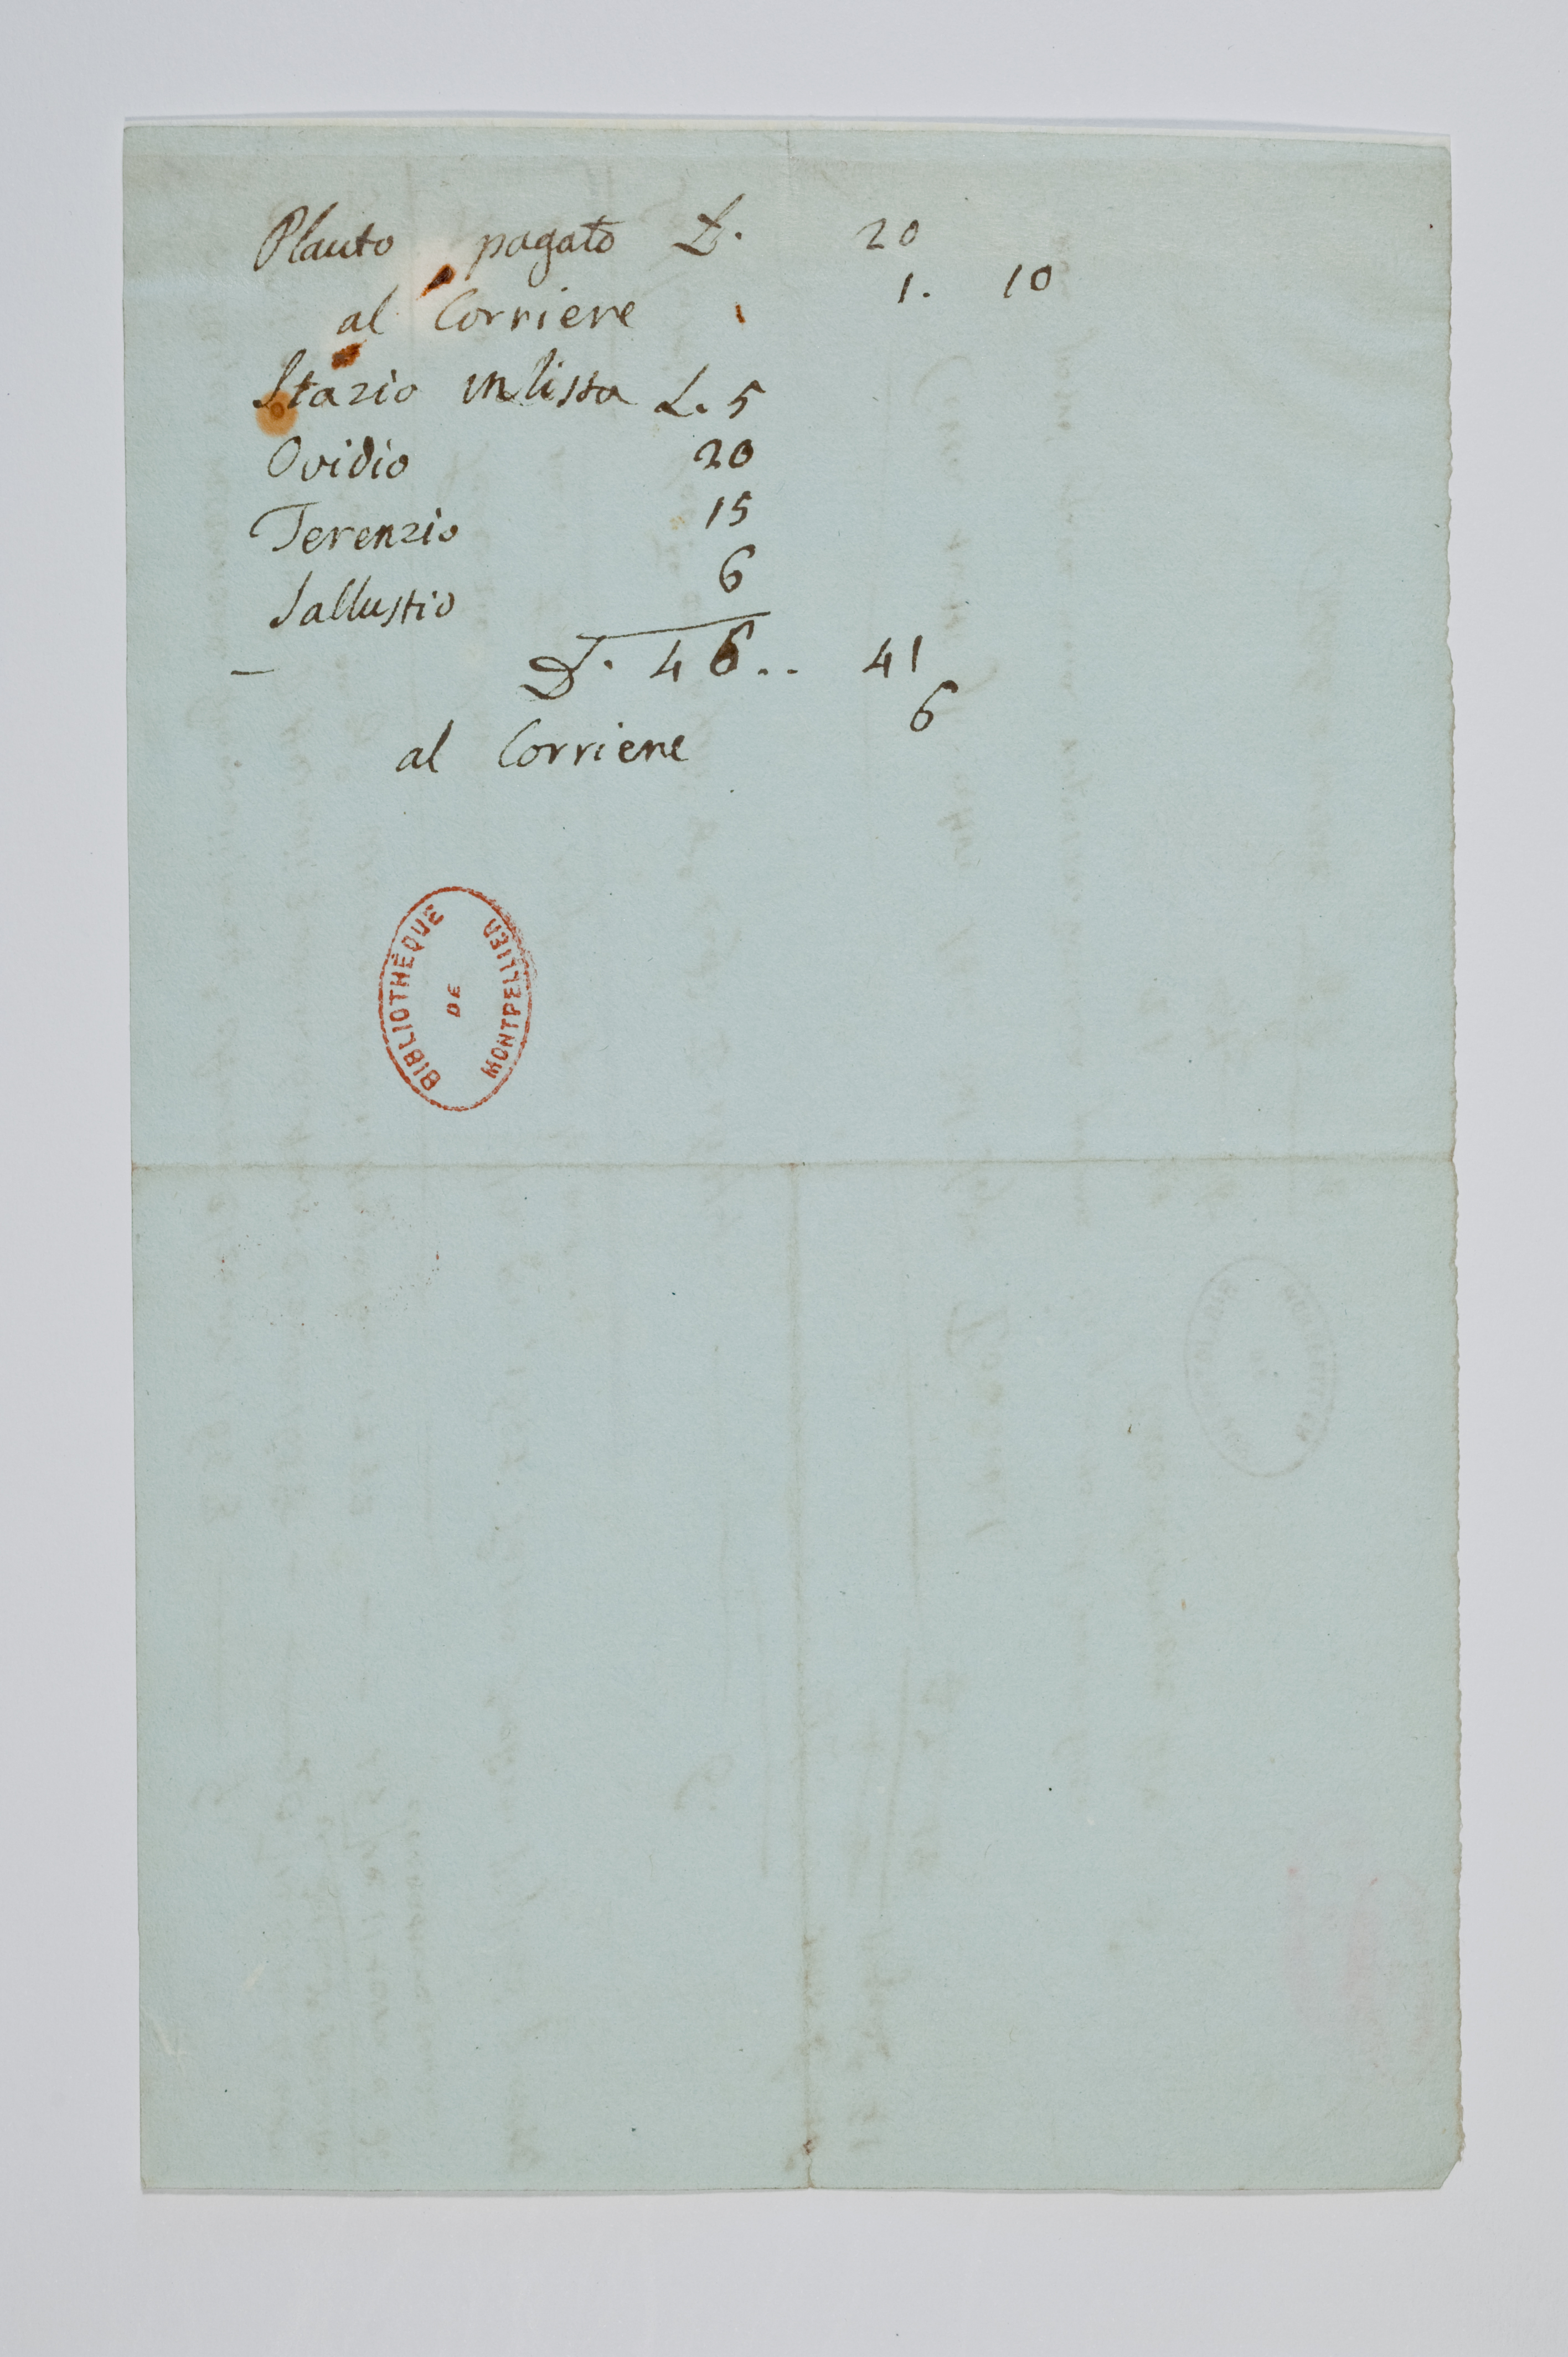 Plauto pagato L. 20
al Corriere 1. 10
Stazio in lista L. 5
Ovidio 20
Terenzio 15
Sallustio 6
L. 46.. 41
al Corriere 6
BIBLIOTHÈQUE
DE
MONTPELLIER